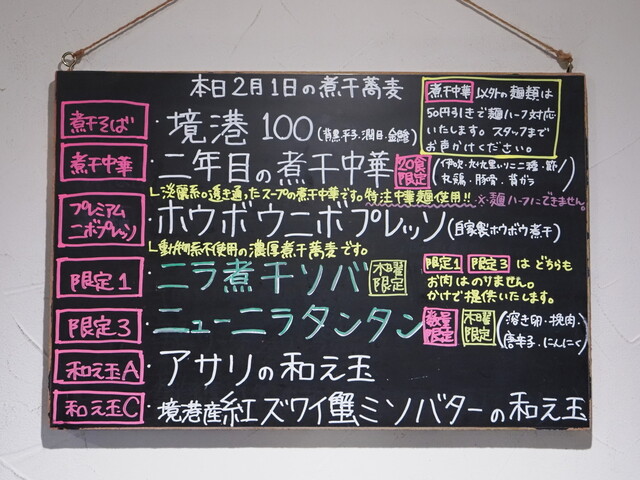 本日2月1日の煮干蕎麦
煮干中華以外の麺類は
50円引きで麺ハーフ対応
いたします。スタッフまで
お声かけください。
煮干そば ・境港100(背黒・平子・潤目・金鯵)
煮干中華 ・二年目の煮干中華 20食限定 (伊吹・九十九里いりこ二種・節/丸鶏・豚骨・背ガラ)
└淡麗系。透き通ったスープの煮干中華です。特注中華麺使用!! ※麺ハーフにできません。
プレミアムニボプレッソ ・ホウボウニボプレッソ(自家製ホウボウ煮干)
└動物系不使用の濃厚煮干蕎麦です。
限定1 ・ニラ煮干ソバ 木曜限定
限定1 限定3 は どちらも
お肉はのりません。
かけで提供いたします。
限定3 ・ニューニラタンタン 数量限定 木曜限定 (溶き卵・挽肉・唐辛子・にんにく)
和え玉A ・アサリの和え玉
和え玉C ・境港産紅ズワイ蟹ミソバターの和え玉